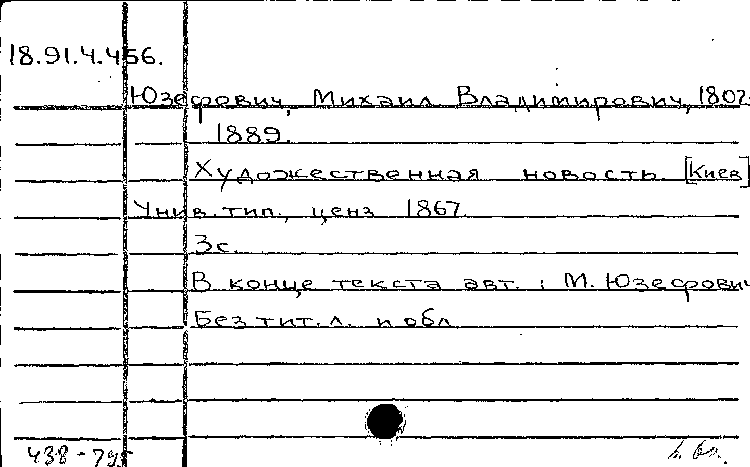 18.91.4.456.
Юзефович, Михаил Владимирович, 1802-
1889.
Художественная новость. [Киев]
Унив. тип., ценз 1867.
3с.
В конце текста авт. : М. Юзефович
Без тит. л. и обл.
438-795